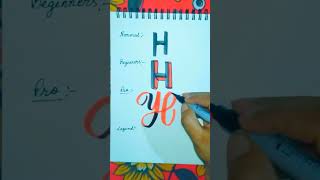 Normal:-
H
Beginners:-
H
Pro:-
H
Legend:-
Beginners:-
Pro:-